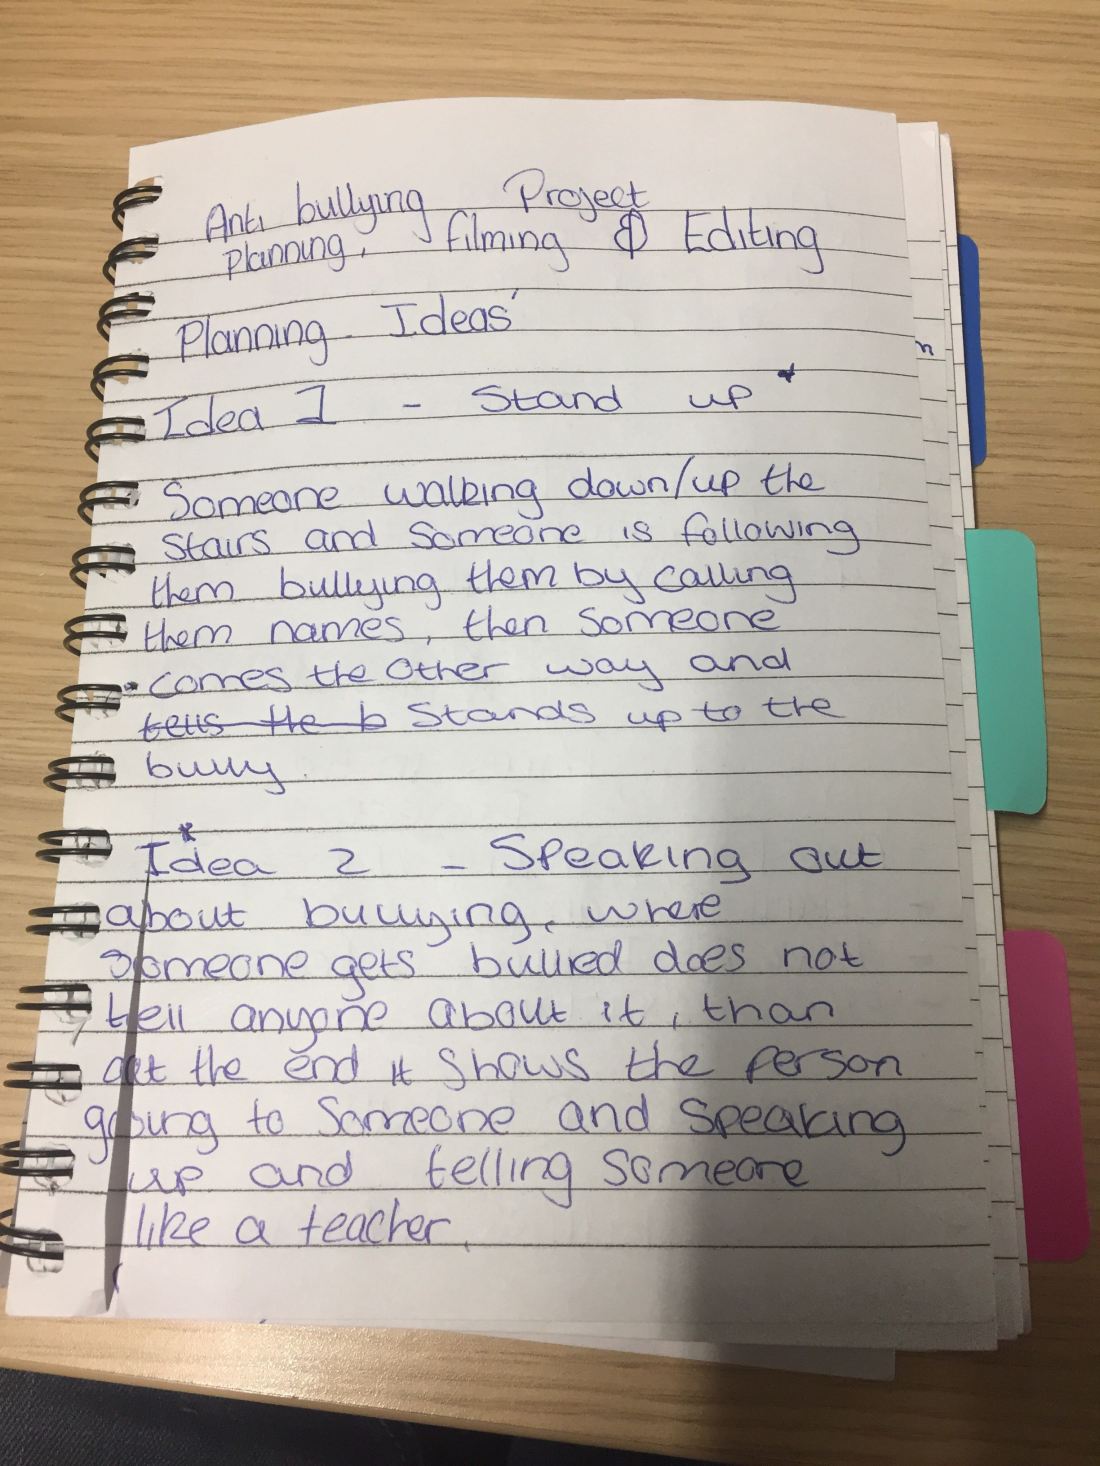 Anti bullying Project
Planning, filming & Editing
Planning Ideas
Idea 1 - Stand up *
Someone walking down/up the
stairs and someone is following
them bullying them by calling
them names, then someone
comes the other way and
tells the b Stands up to the
bully.
Idea 2 - Speaking out
about bullying, where
someone gets bullied does not
tell anyone about it, than
at the end it shows the person
going to someone and speaking
up and telling someone
like a teacher.
n